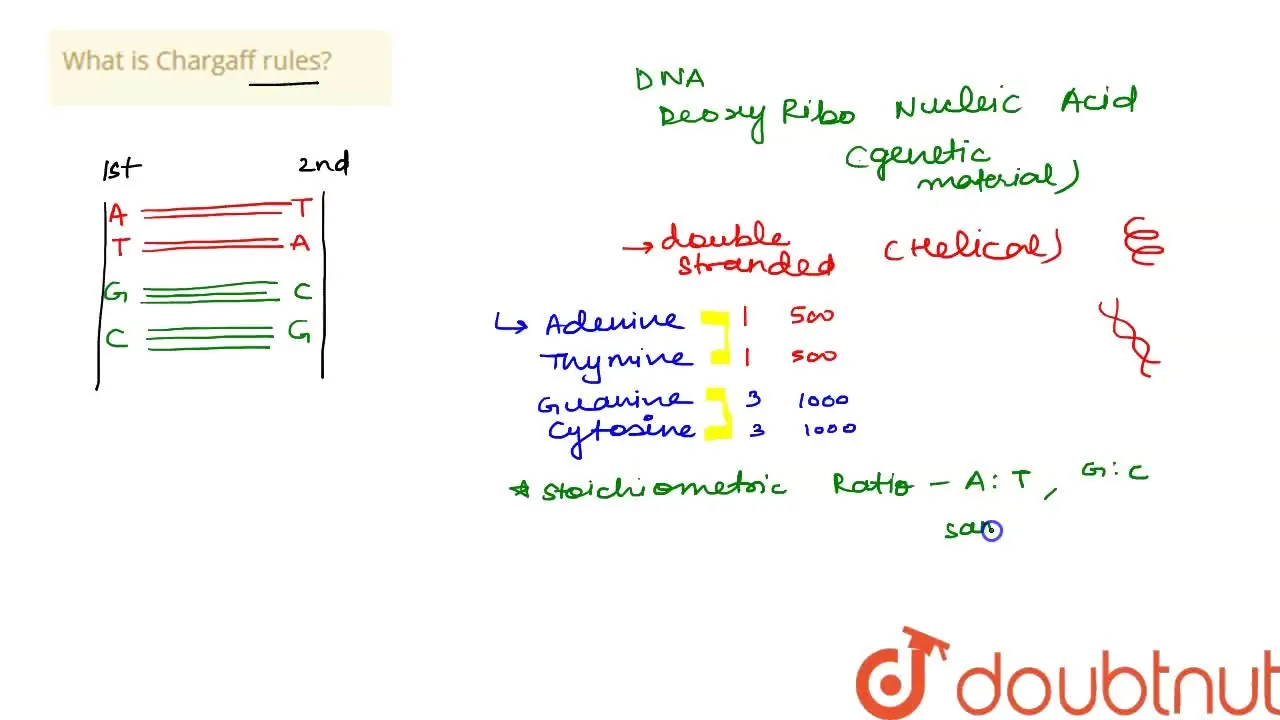 What is Chargaff rules?
DNA
Deoxy Ribo Nucleic Acid
(genetic
material)
1st 2nd
A T
T A
G C
C G
→ double
stranded (Helical)
↳ Adenine 1 500
Thymine 1 500
Guanine 3 1000
Cytosine 3 1000
* Stoichiometric Ratio - A:T, G:C
san
doubtnut